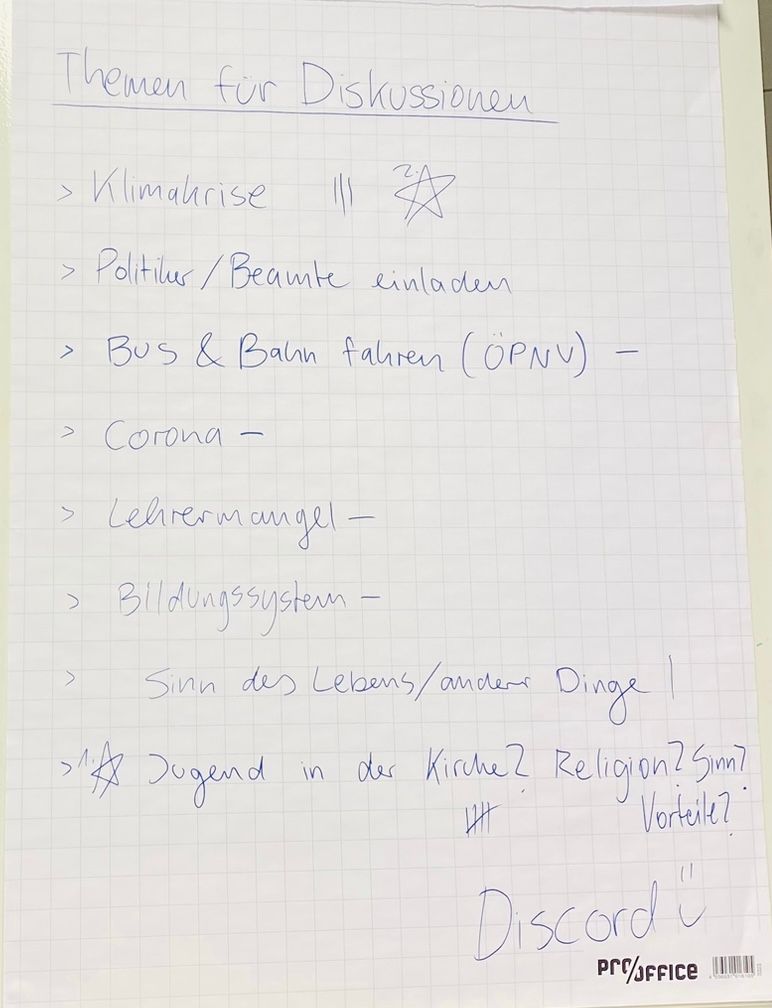 Themen für Diskussionen
> Klimakrise ||| 2.
> Politiker/Beamte einladen
> Bus & Bahn fahren (ÖPNV) –
> Corona –
> Lehrermangel –
> Bildungssystem –
> Sinn des Lebens/anderer Dinge |
> 1. Jugend in der Kirche? Religion? Sinn?
Vorteile?
Discord
PRO/OFFICE